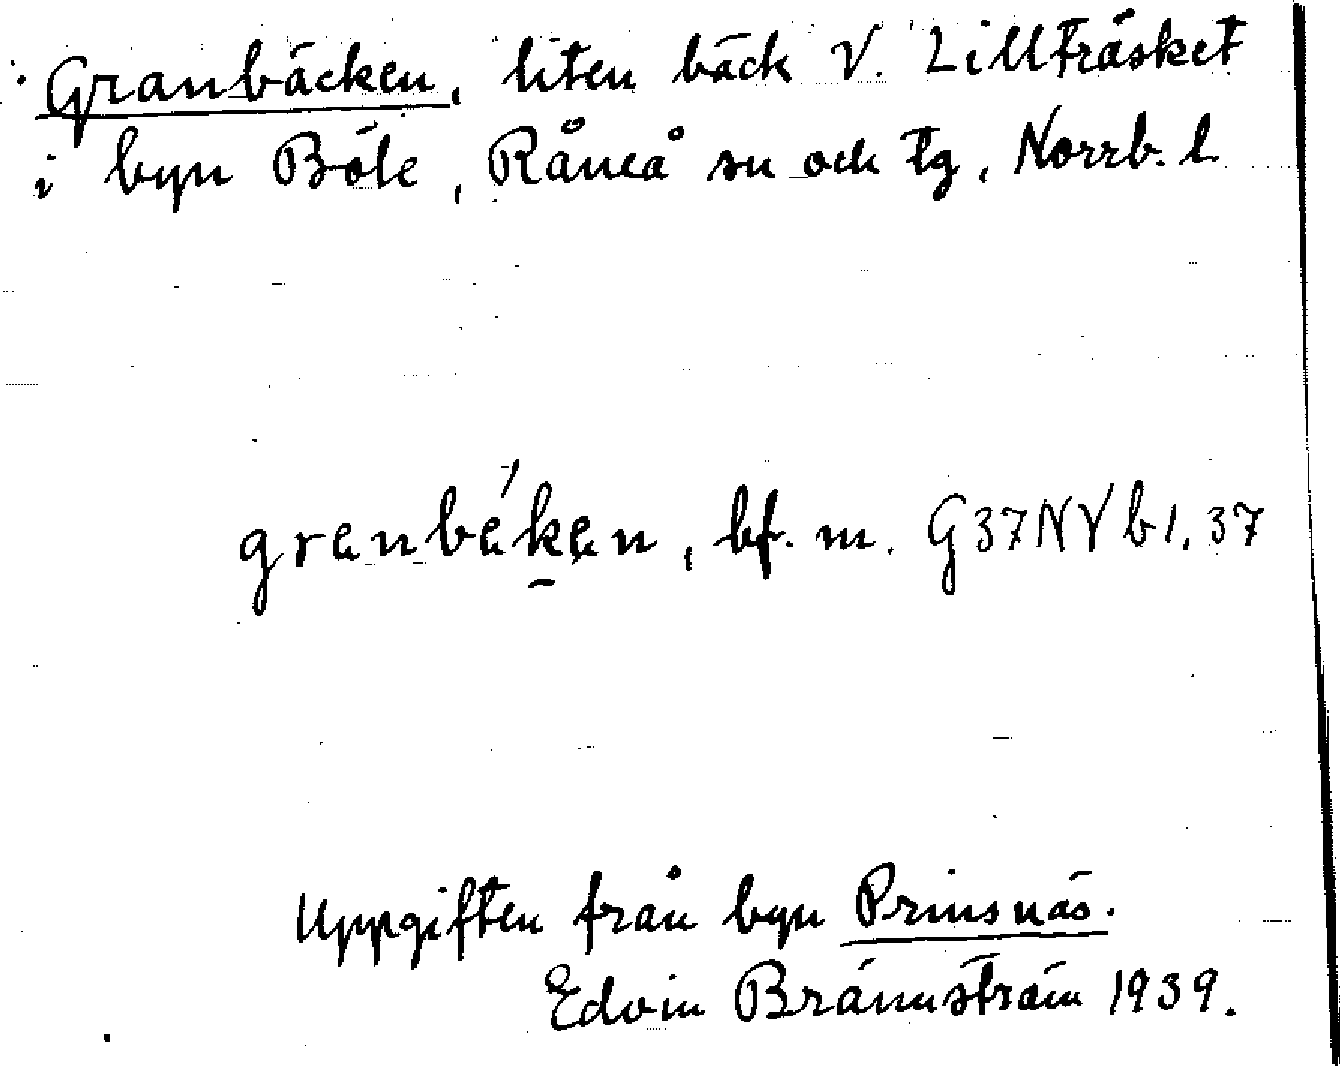 Granbäcken, liten bäck V. Lillträsket
i byn Böle, Råneå sn och tg, Norrb. l.
granbékan, bf. m. G37NVb1.37
Uppgiften från byn Prinsnäs.
Edvin Brännström 1939.